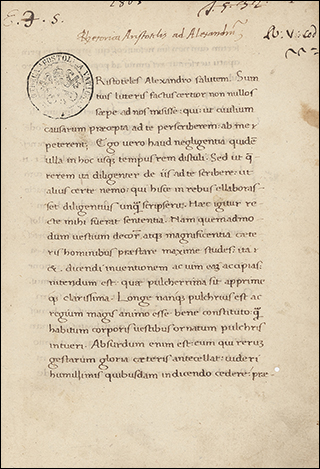 Rhetorica Aristotelis ad Alexandrum
Ristoteles Alexandro salutem. Sum
tius litteris factus certior non nullos
sæpe ad nos misisse: qui ut ciuilium
causarum præcepta ad te perscriberem ab me
peterent, Ego uero haud negligentia quidē
ulla in hoc usq; tempus rem distuli. Sed ut q̄
rerem ita diligenter de iis ad te scribere: ut
alius certe nemo, qui hisce in rebus elaboras-
set diligentius unq̄ scripserit. Haec igitur re
cte mihi fuerat sententia. Nam quemadmo
dum uestium decor, atq; magnificentia cæte
ris hominibus præstare maxime studes: ita
&. dicendi inuentionem ac uim eaq; accipias,
nitendum est: quæ pulcherrima sit apprime
q; clarissima. Longe nanq; pulchrius est ac
regium magis animo esse bene constituto: q̄
habitum corporis uestibus ornatum pulchris
intueri. Absurdum enim est: eum qui rerum
gestarum gloria cæteris antecellat: uideri
humillimis quibusdam in dicendo cedere: præ-